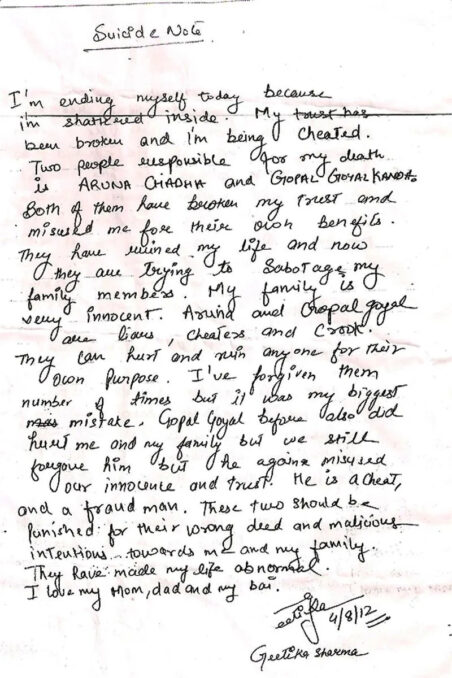 Suicide Note
I'm ending myself today because
i'm shattered inside. My trust has
been broken and i'm being cheated.
Two people responsible for my death
is ARUNA CHADHA and GOPAL GOYAL KANDA.
Both of them have broken my trust and
misused me for their own benefits.
They have ruined my life and now
they are trying to Sabotage my
family members. My family is
very innocent. Aruna and Gopal goyal
are liars, cheaters and Crook.
They can hurt and ruin anyone for their
own purpose. I've forgiven them
number of times but it was my biggest
mistake. Gopal Goyal before also did
hurt me and my family but we still
forgave him but he again misused
our innocence and trust. He is a cheat,
and a fraud man. These two should be
punished for their wrong deed and malicious
intentions towards me and my family.
They have made my life abnormal.
I love my Mom, dad and my bai.
4/8/12
Geetika Sharma